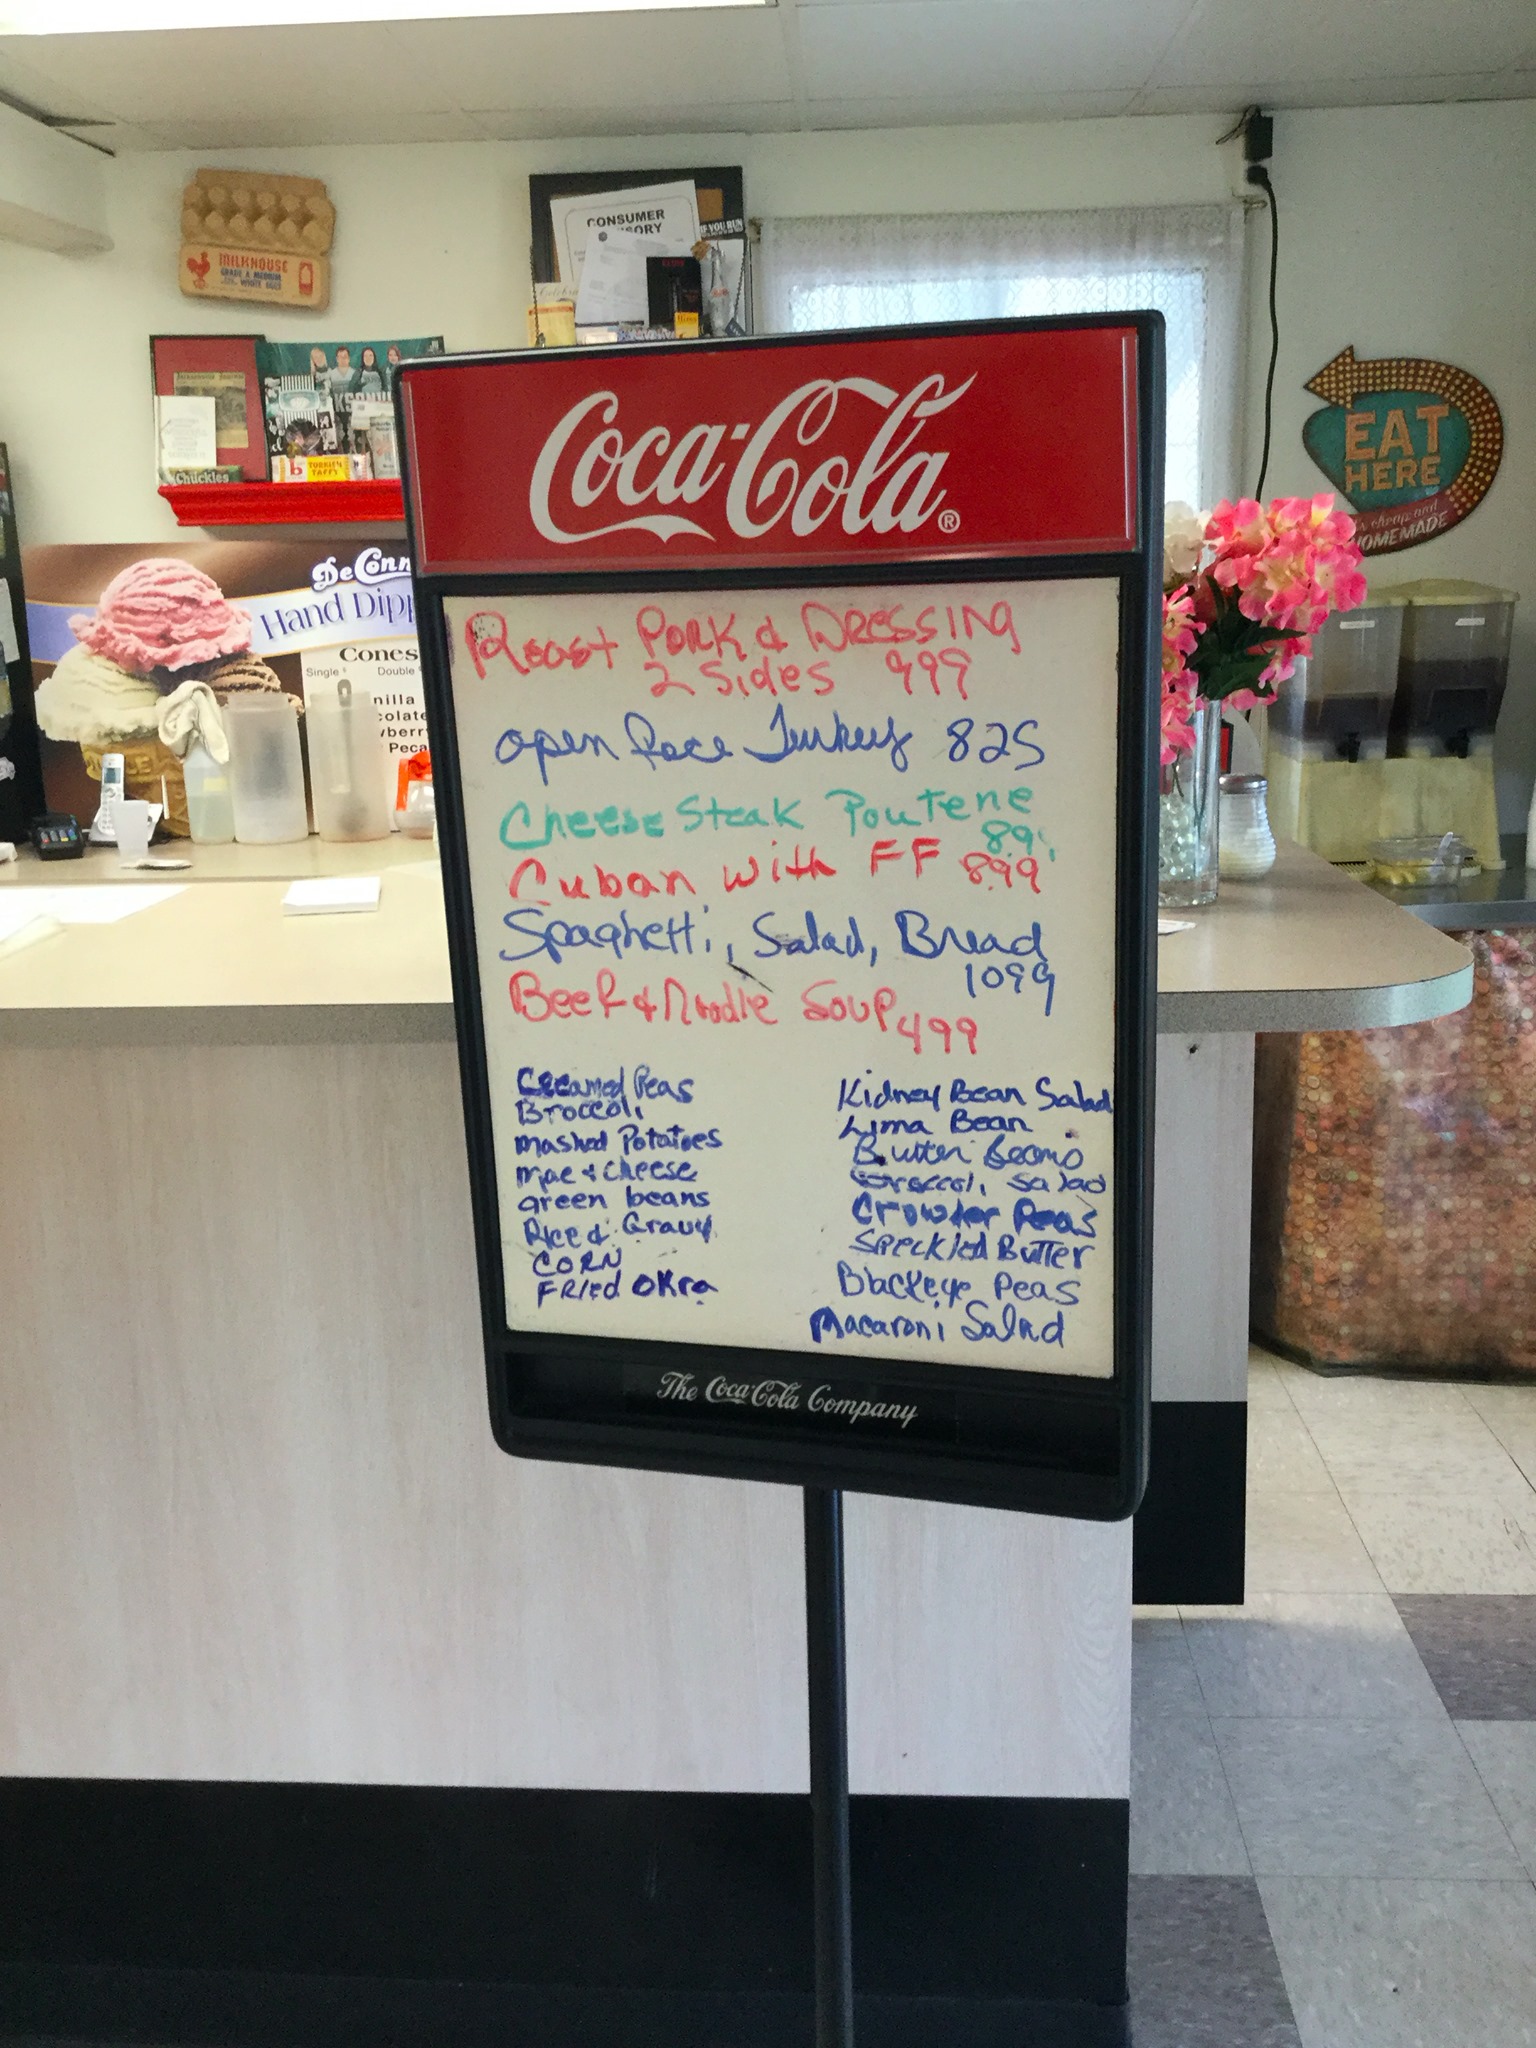 CONSUMER
IF YOU RUN
MILKHOUSE
GRADE A MEDIUM
WHITE EGGS
Chuckles
TURKISH
TAFFY
EAT
HERE
cheap and
HOMEMADE
DeConn
Hand Dipp
Cones
Single Double
nilla
colate
Peca
Coca-Cola®
Roast Pork & Dressing
2 Sides 999
open Face Turkey 825
Cheese Steak Poutene
89
Cuban with FF 899
Spaghetti, Salad, Bread
1099
Beef & Noodle Soup 499
Creamed Peas
Broccoli
Mashed Potatoes
Mac & Cheese
green beans
Rice & Gravy
CORN
FRIED OKra
Kidney Bean Salad
Lima Bean
Butter Beans
Broccoli Salad
Crowder Peas
Speckled Butter
Blackeye Peas
Macaroni Salad
The Coca-Cola Company